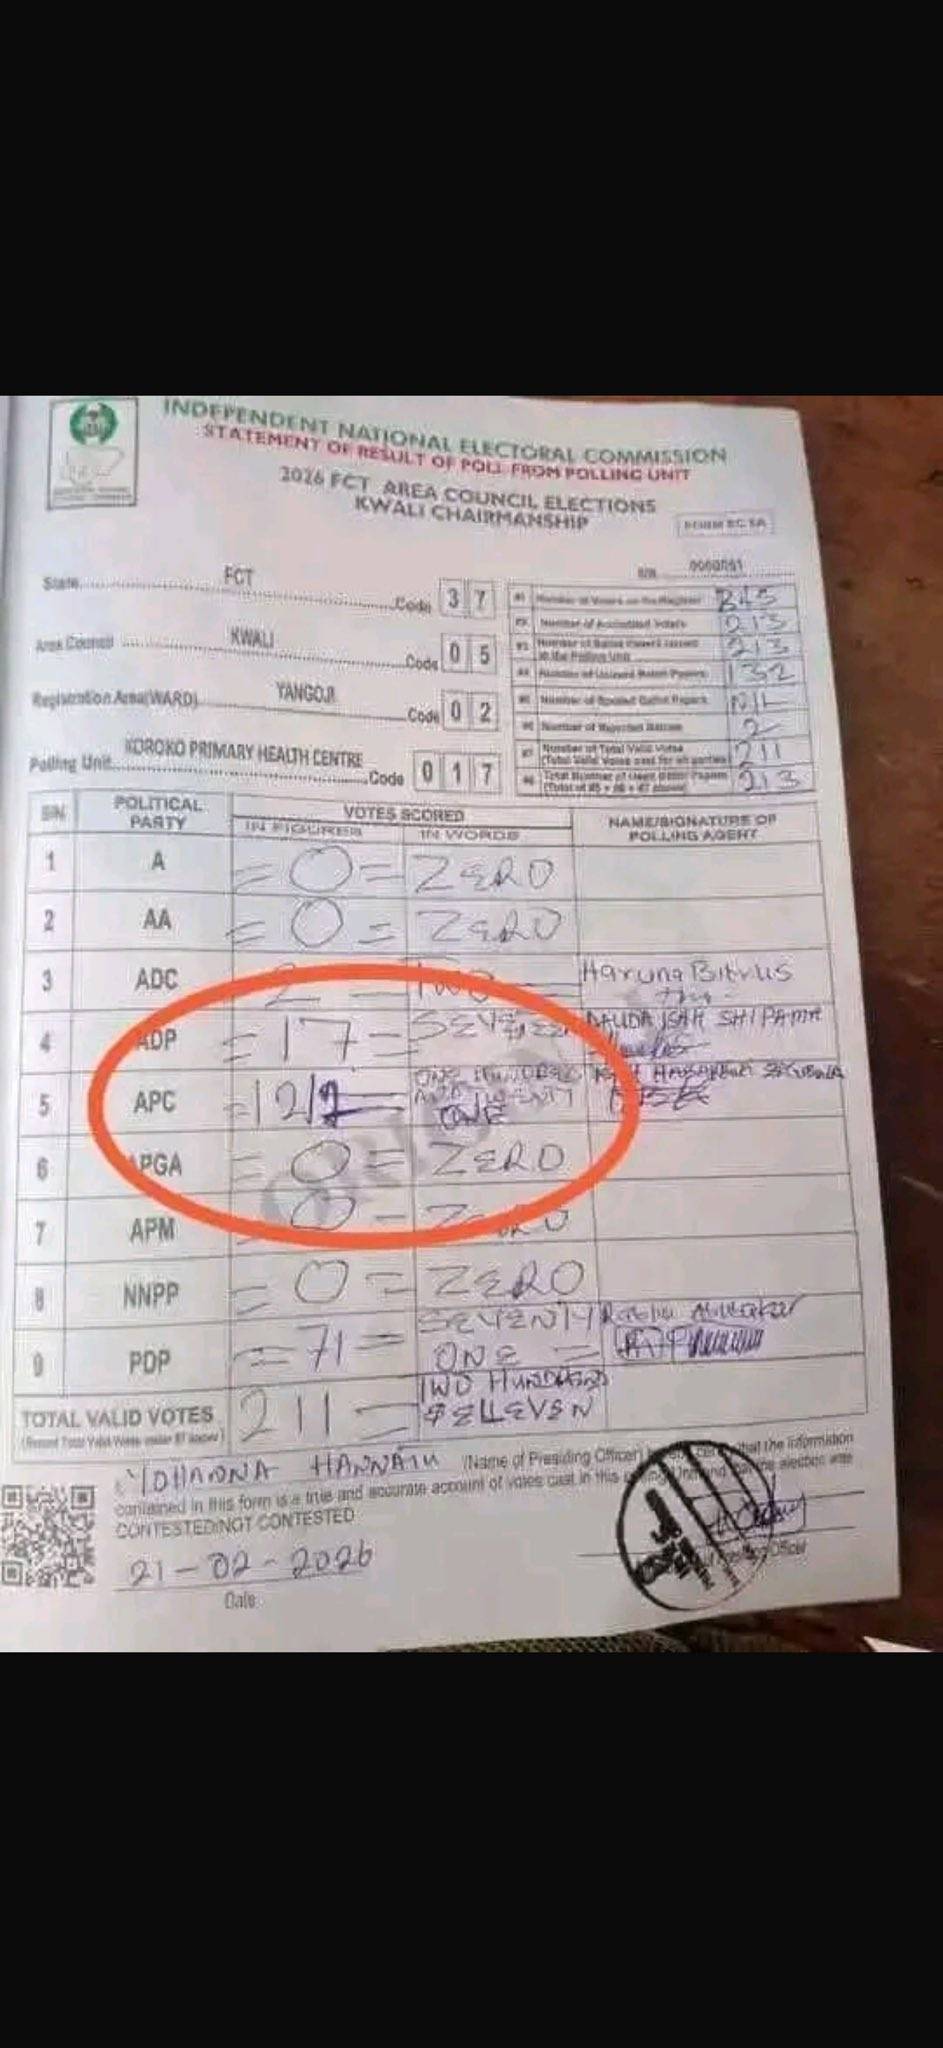 INDEPENDENT NATIONAL ELECTORAL COMMISSION
STATEMENT OF RESULT OF POLL FROM POLLING UNIT
2026 FCT AREA COUNCIL ELECTIONS
KWALI CHAIRMANSHIP
FORM EC 8A
S/N 0000051
State FCT Code 3 7
Area Council KWALI Code 0 5
Registration Area(WARD) YANGOJI Code 0 2
Polling Unit KOROKO PRIMARY HEALTH CENTRE Code 0 1 7
Number of Voters on the Register
Number of Accredited Voters 213
Number of Ballot Papers Issued to the Polling Unit
Number of Unused Ballot Papers 132
Number of Spoiled Ballot Papers NIL
Number of Rejected Ballots 2
Number of Total Valid Votes 211
(Total Valid Votes cast for all parties)
Total Number of Used Ballot Papers 213
(Total of #5 + #6 + #7 above)
S/N POLITICAL PARTY VOTES SCORED NAME/SIGNATURE OF POLLING AGENT
IN FIGURES IN WORDS
1 A = 0 = ZERO
2 AA = 0 = ZERO
3 ADC 2 = TWO Haruna Bitrus
4 ADP = 17 = DAUDA ISAH SHIPAMA
5 APC ONE HUNDRED AND TWENTY ONE
6 APGA = 0 = ZERO
7 APM 0 = ZERO
8 NNPP = 0 = ZERO
9 PDP = 71 = SEVENTY ONE =
TOTAL VALID VOTES 211 = TWO HUNDRED
(Record Total Valid Votes under #7 above)
YOHANNA HANNATU (Name of Presiding Officer) that the information
contained in this form is a true and accurate account of votes cast in this the election was
CONTESTED/NOT CONTESTED
21-02-2026
Date